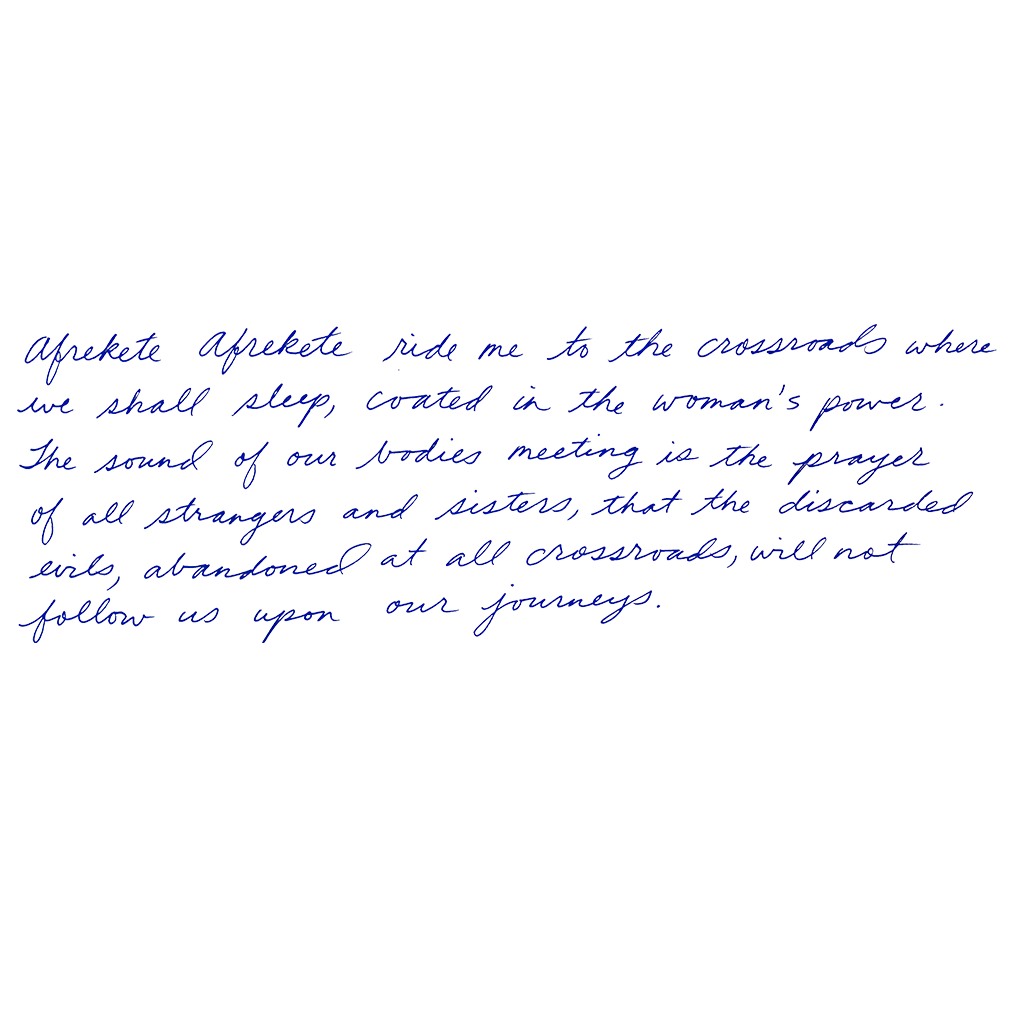 Afrekete Afrekete ride me to the crossroads where
we shall sleep, coated in the woman's power.
The sound of our bodies meeting is the prayer
of all strangers and sisters, that the discarded
evils, abandoned at all crossroads, will not
follow us upon our journeys.